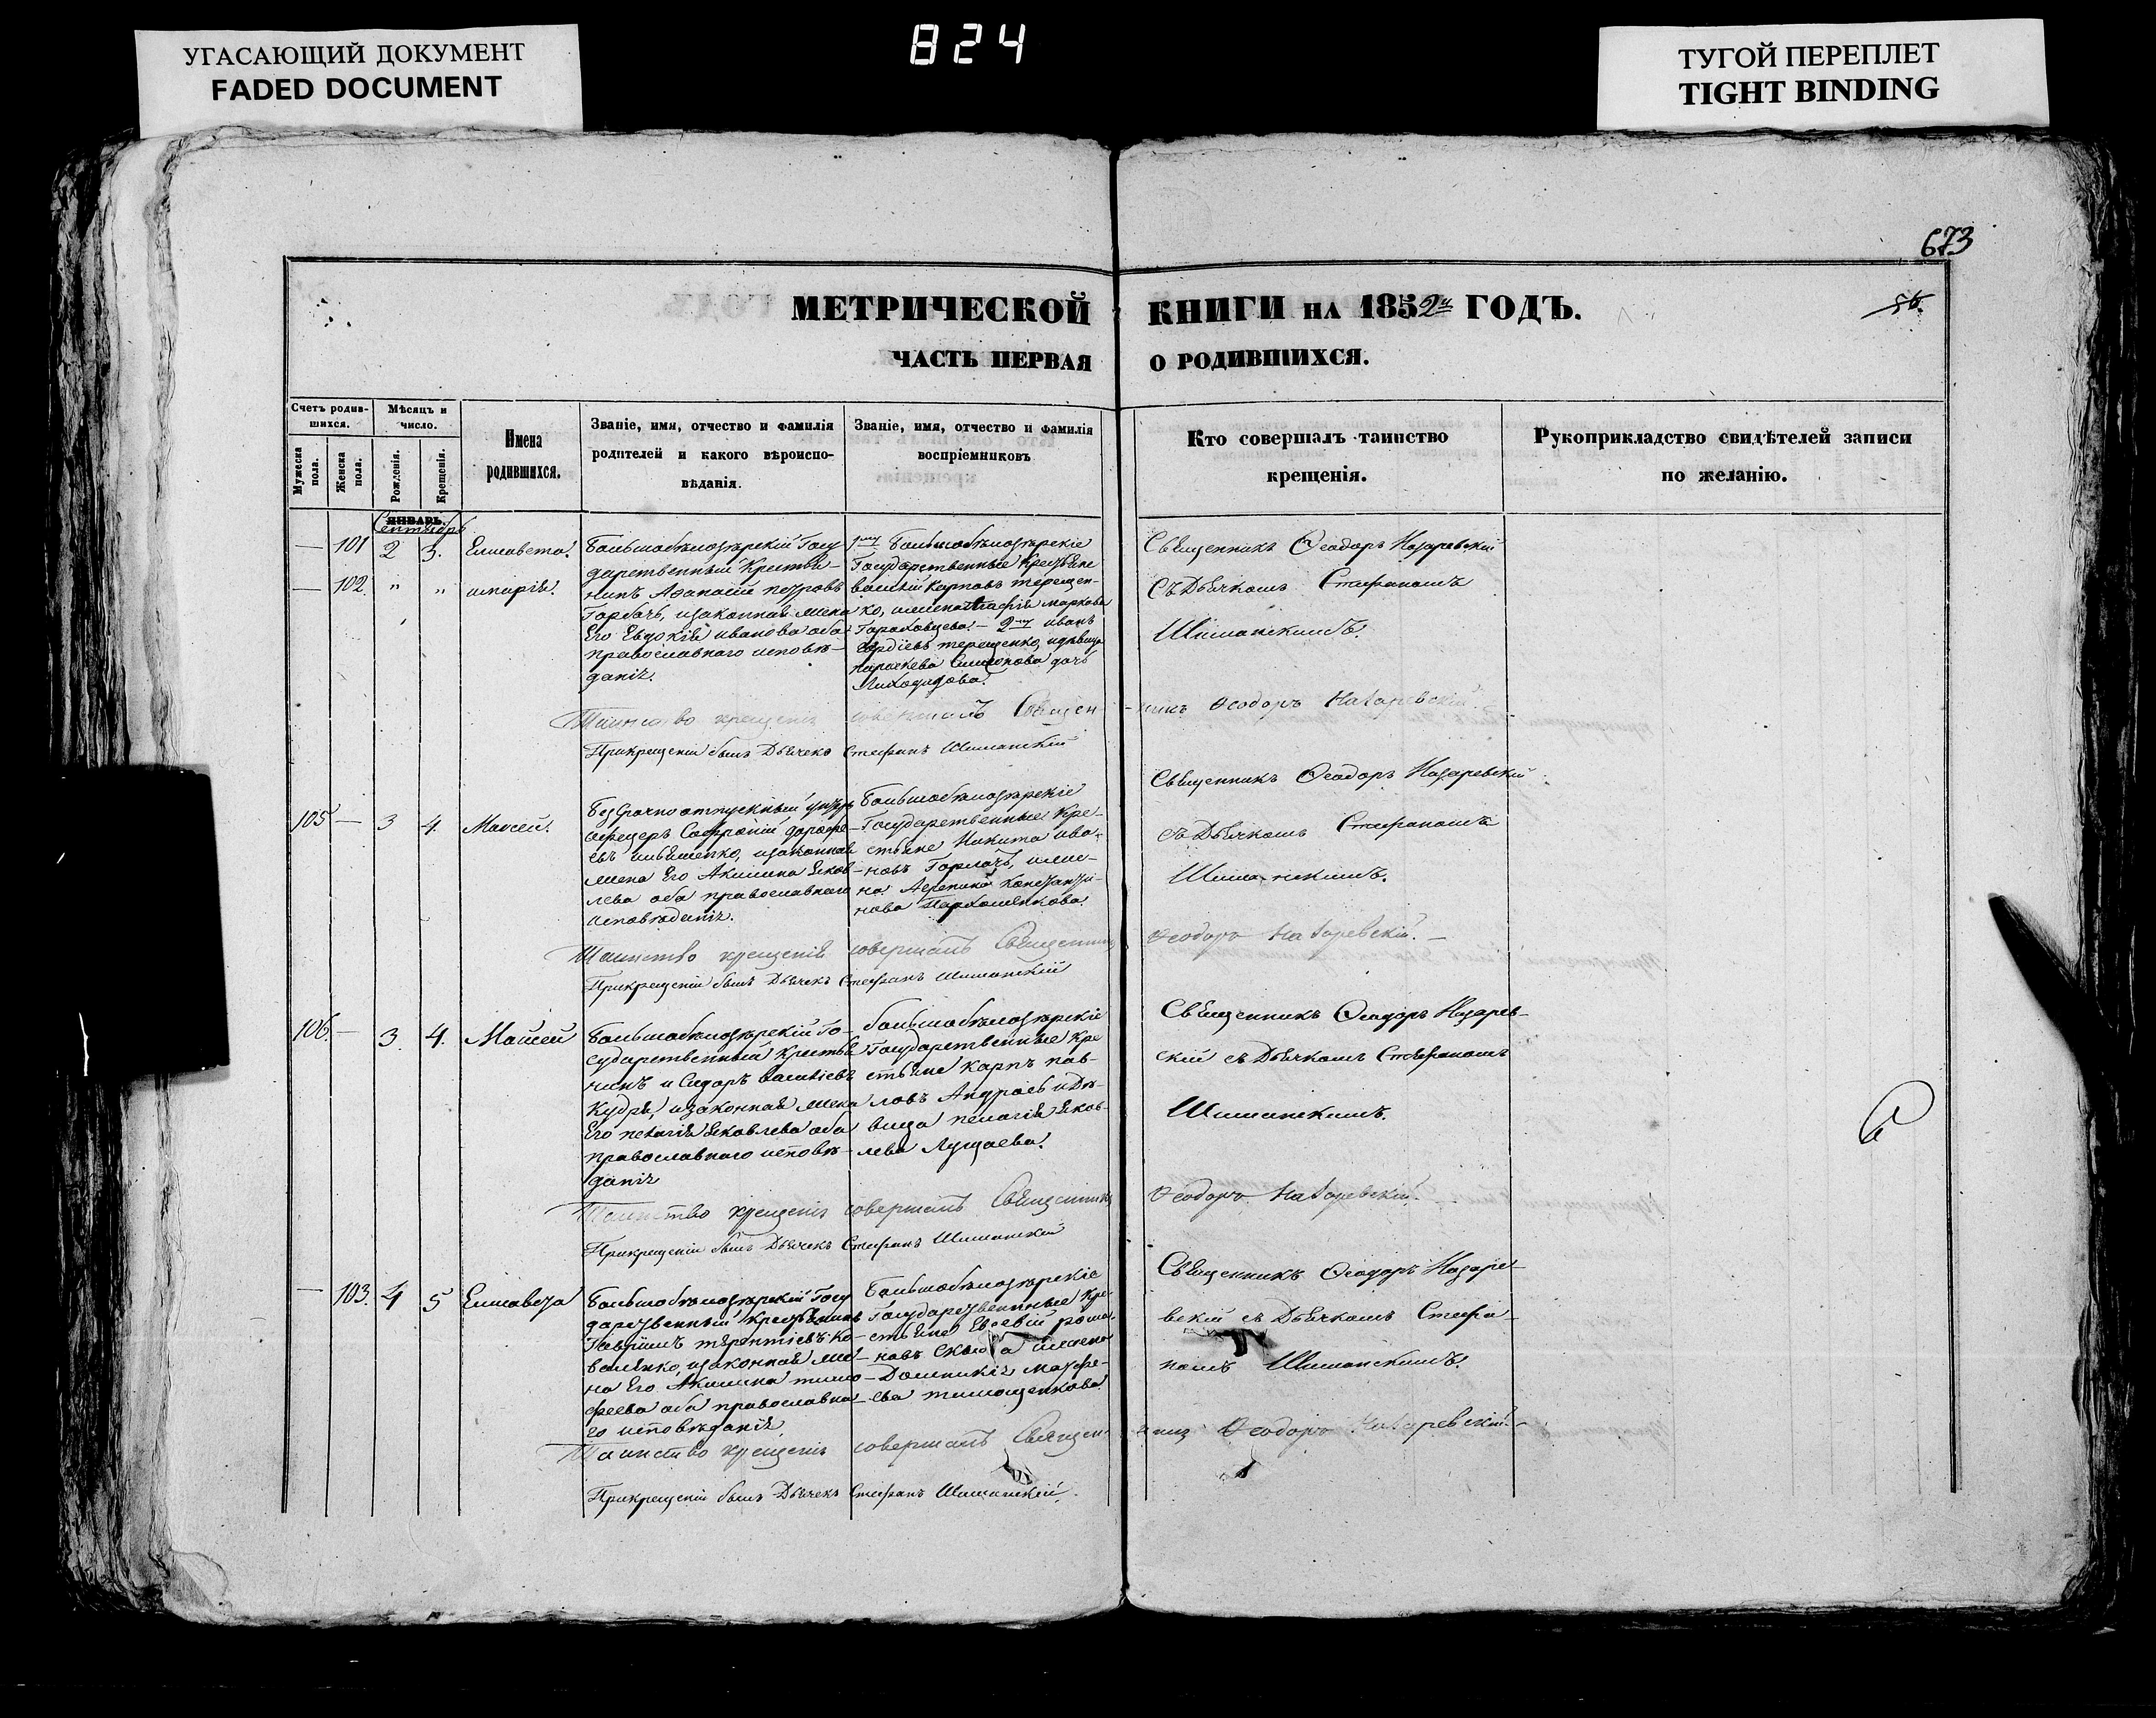 УГАСАЮЩИЙ ДОКУМЕНТ
FADED DOCUMENT
824
ТУГОЙ ПЕРЕПЛЕТ
TIGHT BINDING
673
МЕТРИЧЕСКОЙ КНИГИ НА 1852й ГОДЪ.
56.
ЧАСТЬ ПЕРВАЯ О РОДИВШИХСЯ.
Счетъ родив-
шихся.
Мужеска пола.
Женска пола.
Мѣсяцъ и
число.
Рожденія.
Крещенія.
Имена
родившихся.
Званіе, имя, отчество и фамилія
родителей и какого вѣроиспо-
вѣданія.
Званіе, имя, отчество и фамилія
воспріемниковъ
Кто совершалъ таинство
крещенія.
Рукоприкладство свидѣтелей записи
по желанію.
ЯНВАРЬ.
Сентябрь
— 101 2 3. Елисавета.
— 102. " " Марія.
Большобѣлозѣрскій Госу
дарственный Крестья-
нинъ Аѳанасій Петровъ
Горбачь, изаконная жена
Его Евдокія иванова оба
православнаго исповѣ-
данія.
Большобѣлозѣрскіе
Государственные Крестьяне
василій Карповъ терещен-
ко, маркова
Гороховцева. — 2й иванъ
терещенко, идѣвица
параскева Симонова дочь
Священникъ Ѳеодоръ Назаревскій
Съ Дьячкомъ Стефаномъ
Шиманскимъ.
Таинство крещенія совершалъ Священ-
никъ Ѳеодоръ Назаревскій.
Прикрещеніи былъ Дьячекъ Стефанъ Шиманскій
105 — 3 4. Моисей.
Безсрочноотпускный унтеръ
офицеръ Софроній дорофе-
евъ изаконная
жена Его Акилина Яков-
лева оба православнаго
исповѣданія.
Большобѣлозѣрскіе
Государственные Кре-
стьяне Никита ива-
новъ Горлачъ, ижен-
на Константи-
нова Пархоменкова.
Священникъ Ѳеодоръ Назаревскій
съ Дьячкомъ Стефаномъ
Шиманскимъ.
Таинство крещенія совершалъ Священникъ
Ѳеодоръ Назаревскій. —
Прикрещеніи былъ Дьячекъ Стефанъ Шиманскій
106. — 3. 4. Моисей
Большобѣлозѣрскій Го-
сударственный Крестья
нинъ и Сидоръ васильевъ
Кудря, изаконная жена
Его пелагія Яковлева оба
православнаго исповѣ-
данія
большобѣлозѣрскіе
Государственные Кре
стьяне карпъ пав-
ловъ идѣ-
вица пелагія Яков-
лева Луцаева.
Священникъ Ѳеодоръ Назарев-
скій съ Дьячкомъ Стефаномъ
Шиманскимъ.
Таинство крещенія совершалъ Священникъ
Ѳеодоръ Назаревскій.
Прикрещеніи былъ Дьячекъ Стефанъ Шиманскій
— 103. 4 5 Елисавета
Большобѣлозѣрскій Госу
дарственный крестьянинъ
Гавріилъ терентіевъ Ко-
валенко, изаконная же-
на Его Акилина тимо-
феева оба православна-
го исповѣданія.
Большобѣлозѣрскіе
Государственные Кре-
стьяне Евсевій рома-
новъ
Домникія Матфе-
ева тимощенкова
Священникъ Ѳеодоръ Назаре-
вскій съ Дьячкомъ Стефа-
номъ Шиманскимъ.
Таинство крещенія совершалъ Священ-
никъ Ѳеодоръ Назаревскій.
Прикрещеніи былъ Дьячекъ Стефанъ Шиманскій.